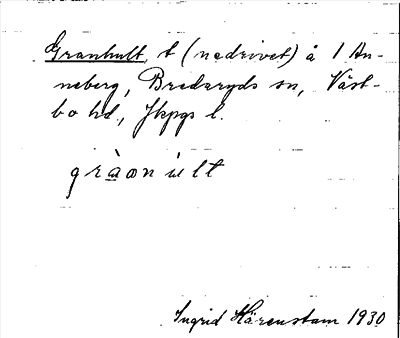 Granhult, t (nedrivet) å 1 An-
neberg, Bredaryds sn, Väst-
bo hd., Jkpgs l.
gràωn ùlt
Ingrid Härenstam 1930